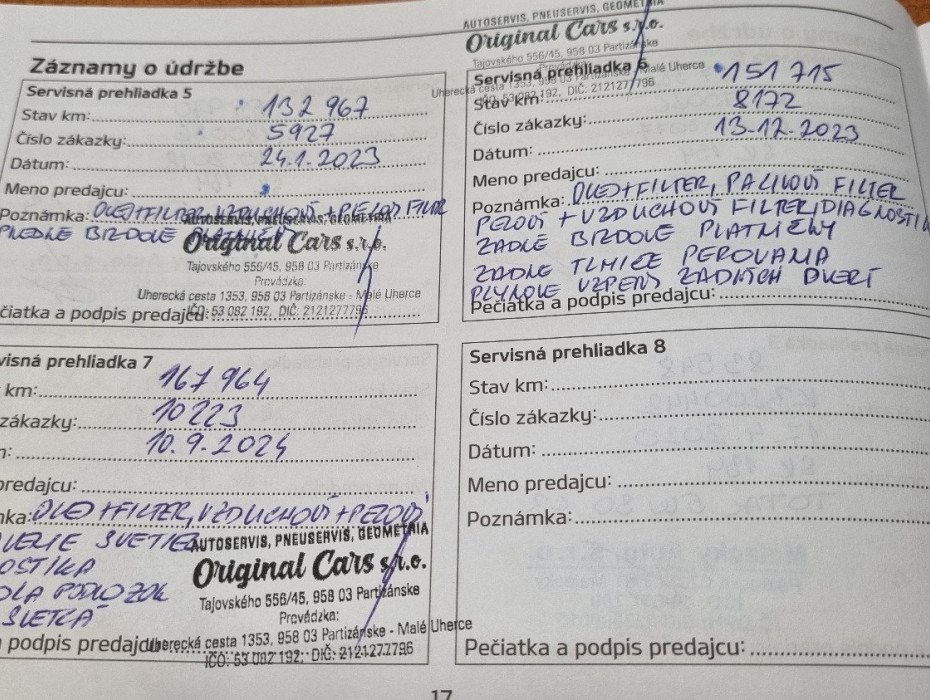 AUTOSERVIS, PNEUSERVIS, GEOMETRIA
Original Cars s.r.o.
Tajovského 556/45, 958 03 Partizánske
Prevádzka:
Uherecká cesta 1353, 958 03 Partizánske - Malé Uherce
IČO: 53 082 192, DIČ: 2121277796
Záznamy o údržbe
Servisná prehliadka 5
Stav km: 132 967
Číslo zákazky: 5927
Dátum: 24.1.2023
Meno predajcu:
Poznámka: OLEJ+FILTER, VZDUCHOVÝ + PEĽOVÝ FILTER
PREDNÉ BRZDOVÉ PLATNIČKY
AUTOSERVIS, PNEUSERVIS, GEOMETRIA
Original Cars s.r.o.
Tajovského 556/45, 958 03 Partizánske
Prevádzka:
Uherecká cesta 1353, 958 03 Partizánske - Malé Uherce
IČO: 53 082 192, DIČ: 2121277796
čiatka a podpis predajcu:
Servisná prehliadka 6
Stav km: 151 715
Číslo zákazky: 8172
Dátum: 13.12.2023
Meno predajcu:
Poznámka: OLEJ+FILTER, PALIVOVÝ FILTER
PEĽOVÝ + VZDUCHOVÝ FILTER, DIAGNOSTIK
ZADNÉ BRZDOVÉ PLATNIČKY
ZADNÉ TLMIČE PEROVANIA
PLYNOVÉ VZPERY ZADNÝCH DVERÍ
Pečiatka a podpis predajcu:
visná prehliadka 7
km: 167 964
zákazky: 10223
m: 10.9.2024
predajcu:
ka: OLEJ+FILTER, VZDUCHOVÝ + PEĽOVÝ
OSTIKA
AUTOSERVIS, PNEUSERVIS, GEOMETRIA
Original Cars s.r.o.
Tajovského 556/45, 958 03 Partizánske
Prevádzka:
Uherecká cesta 1353, 958 03 Partizánske - Malé Uherce
IČO: 53 082 192, DIČ: 2121277796
podpis predajcu:
Servisná prehliadka 8
Stav km:
Číslo zákazky:
Dátum:
Meno predajcu:
Poznámka:
Pečiatka a podpis predajcu:
17